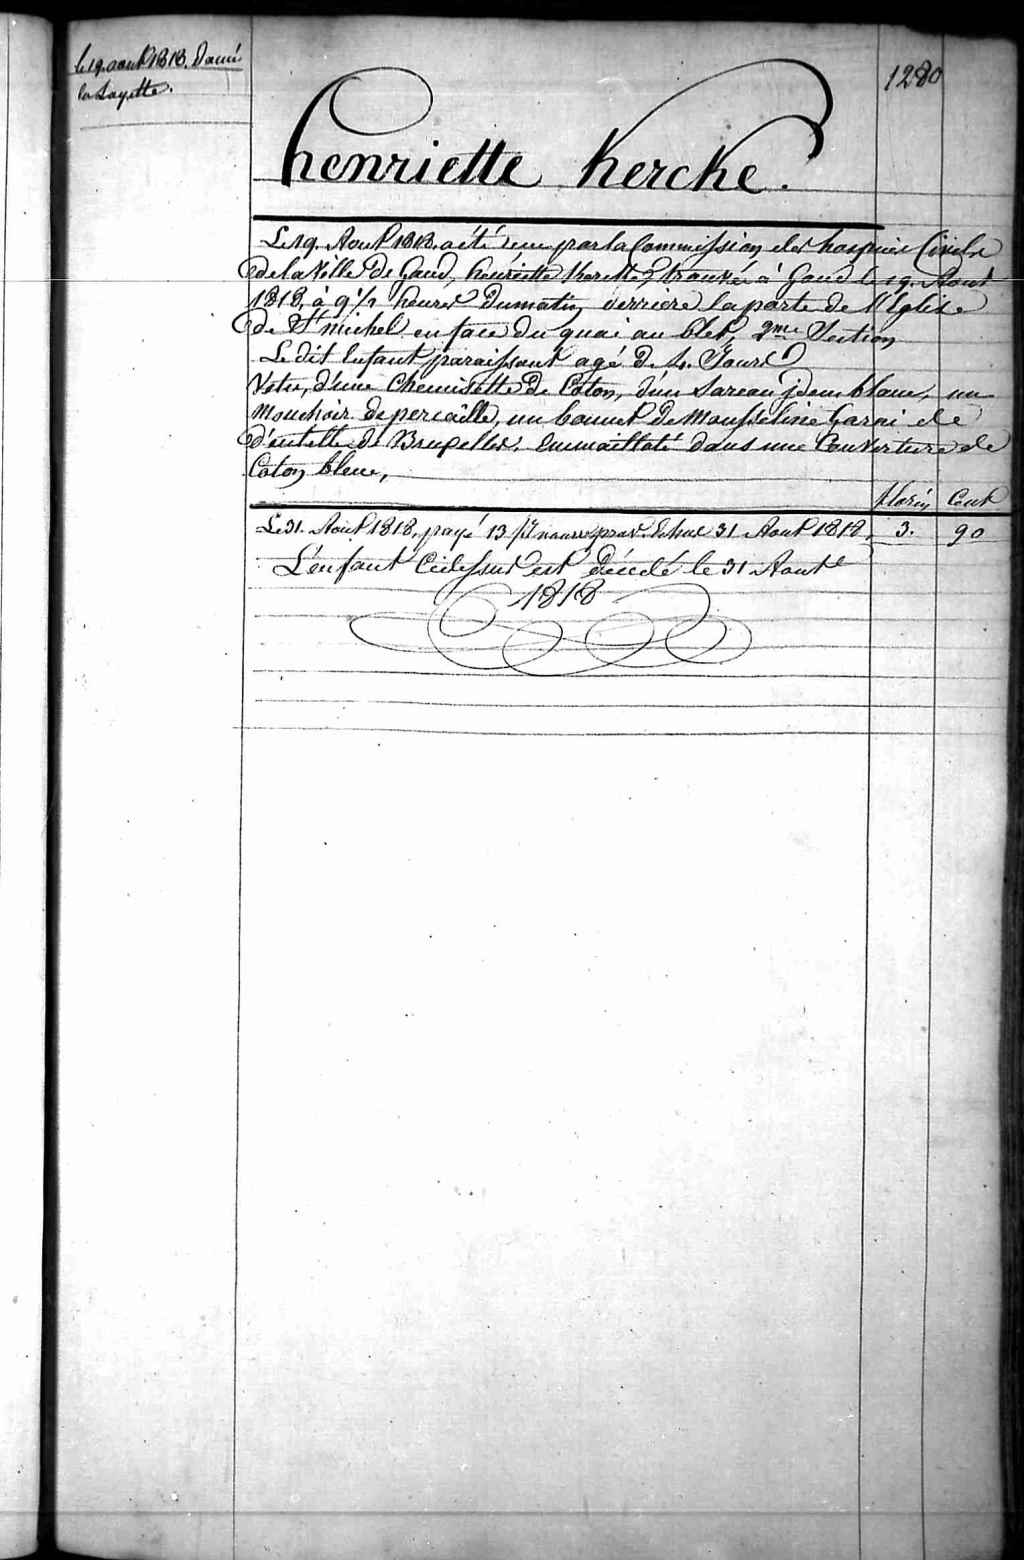 le 19 aout 1818. Donné
la Layette.
1280
henriette Kercke.
Le 19. Aout 1818. a été reçue par la Commission des hospices Civils
de la Ville de Gand, henriette Kercke, trouvée à Gand le 19. Aout
1818, à 9 1/2 heures du matin derriere la porte de l'Eglise
de St michel en face du quai au bled, 2me Section
Le dit Enfant paraissant agé de 4. Jours
Vetu, d'une Chemisette de Coton, d'un Sareau idem blanc, un
Mouchoir de percaille, un bonnet de Mousseline Garni de
d'entelle de Bruxelles, Emmaillotté dans une Couverture de
Coton bleue,
florin Cent
Le 31. Aout 1818, payé 13 Jrs nourr. prov. Echue 31 Aout 1818, 3. 90
L'enfant Cidessus est décédé le 31 Aout
1818